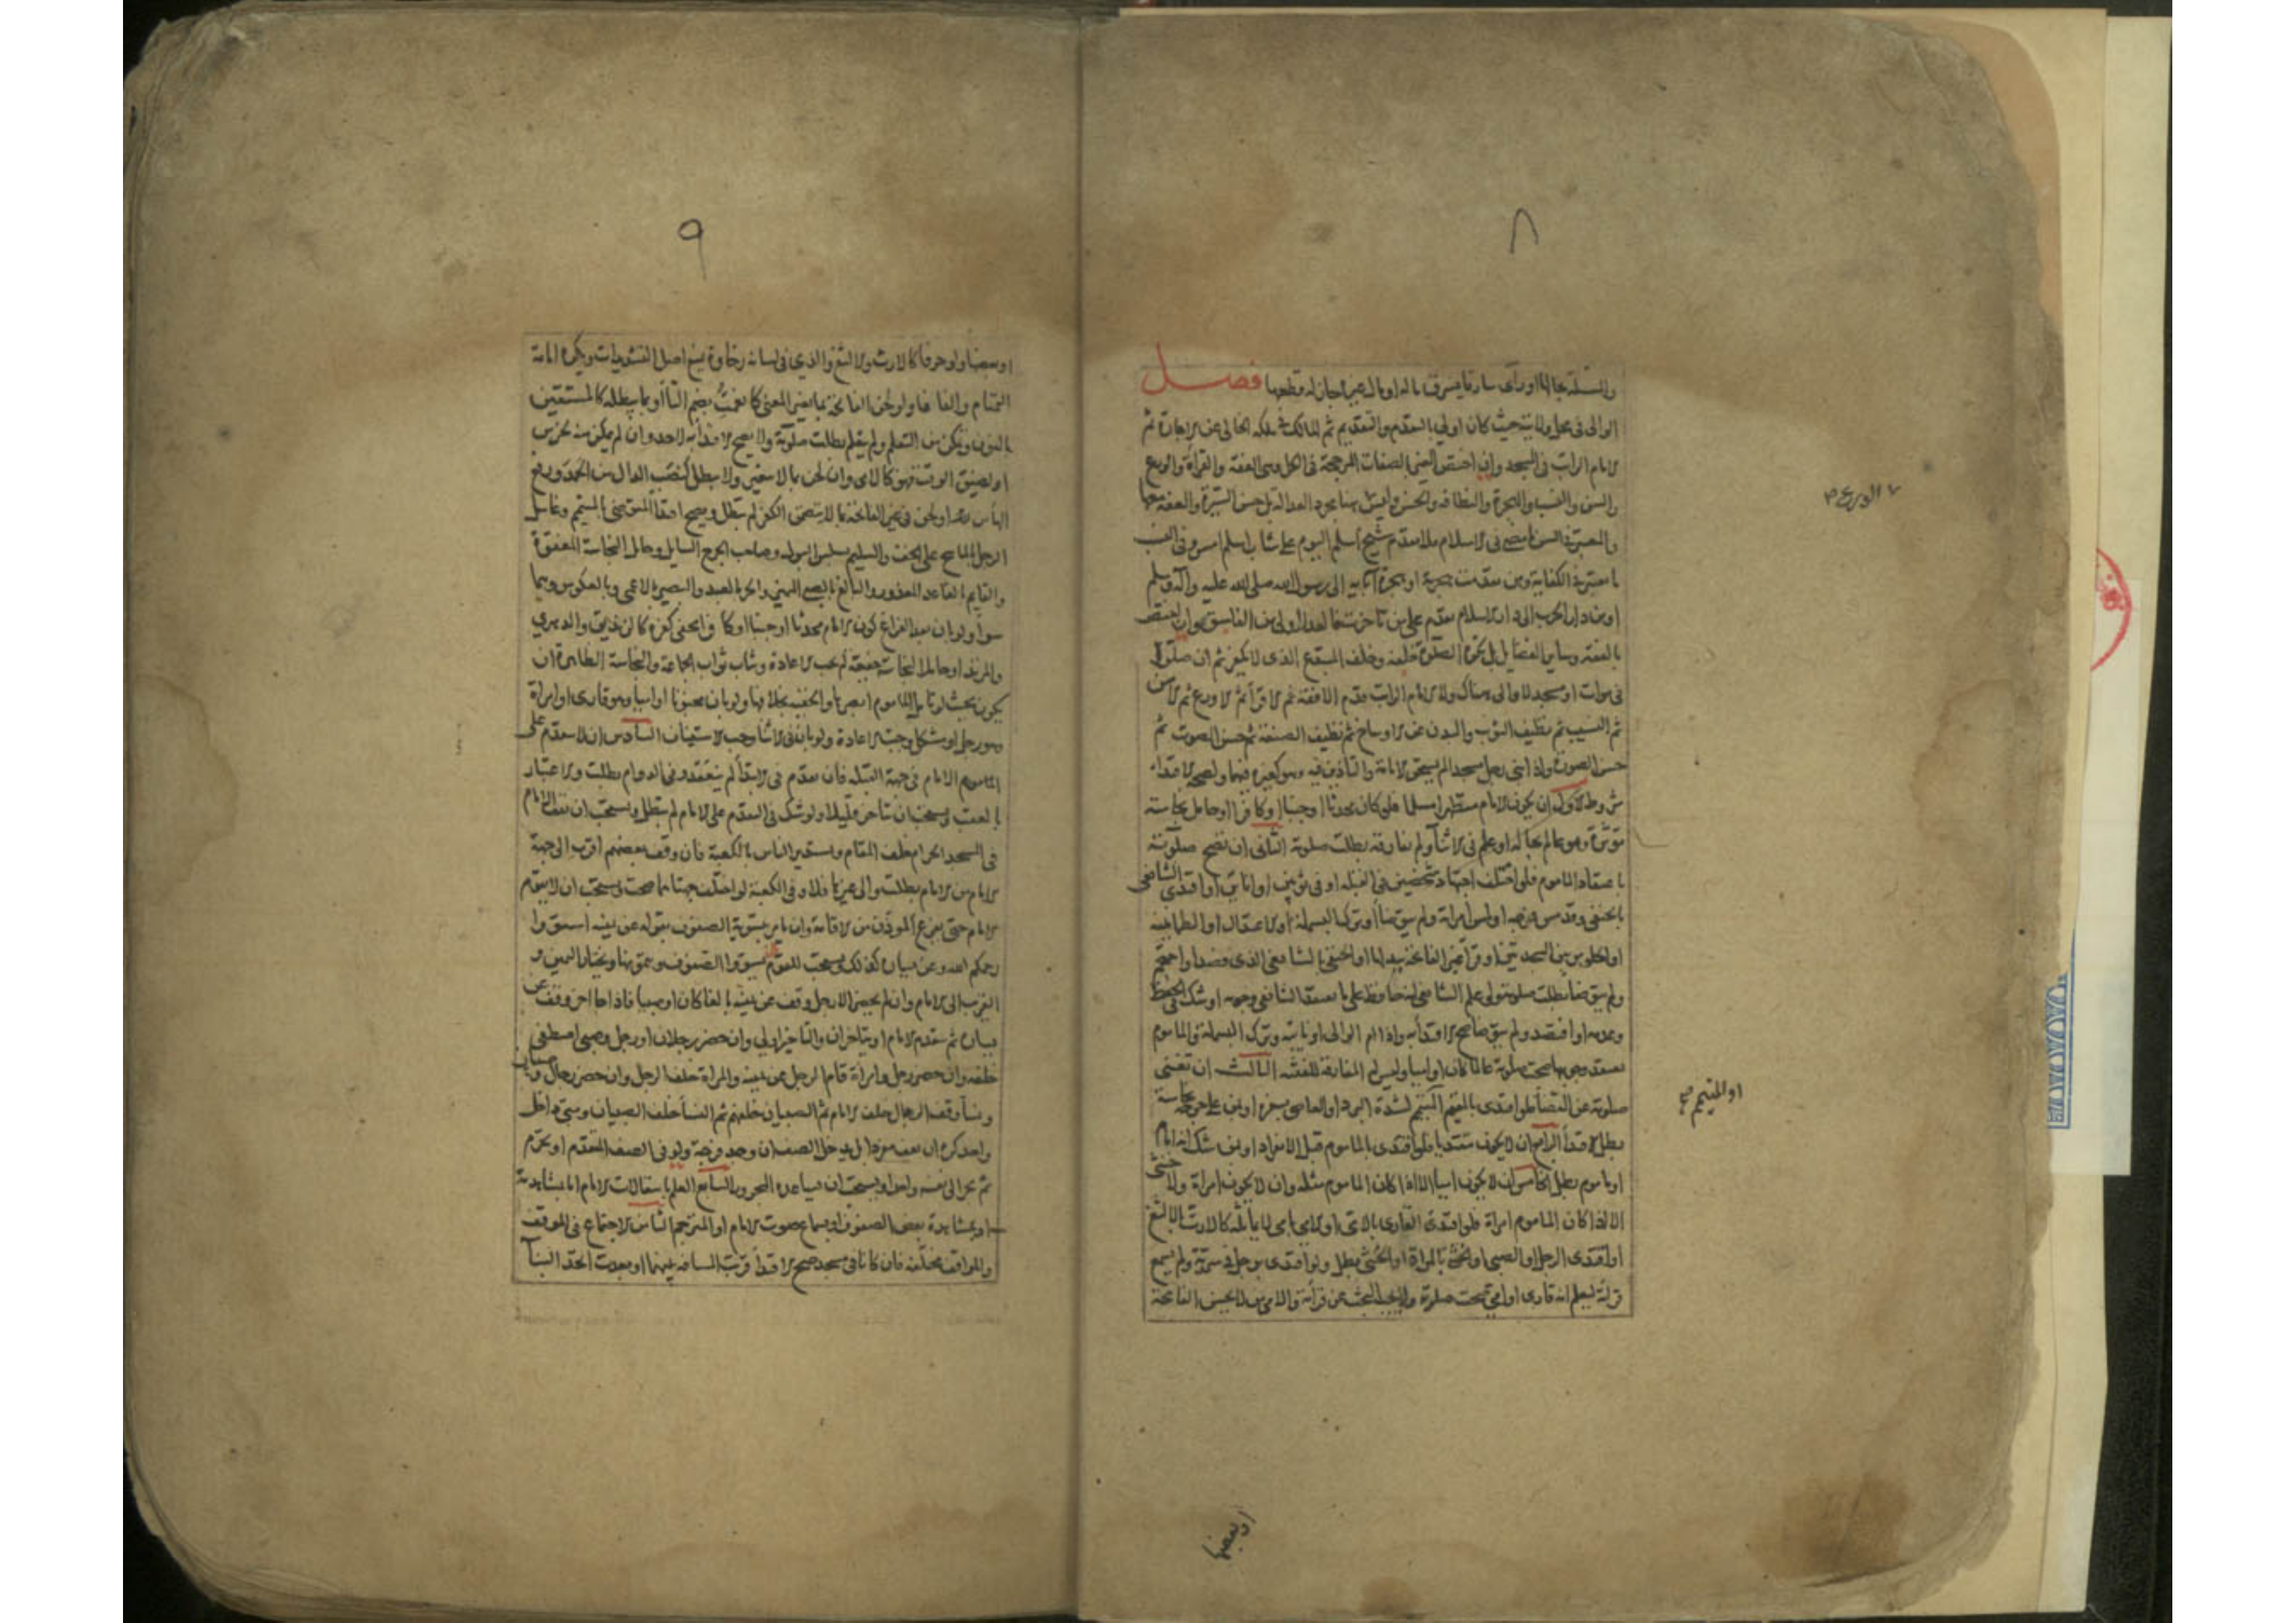 ٨
والمسئلة بحالها او رأى سارقا يسرق ماله او مال غيره جاز له قطعها فصل
الوالى فى محل ولايته حيث كان اولى بالتقدم والتقديم ثم المالك فى ملكه الخالى عن الاجارة ثم
الامام الراتب فى المسجد وان اختص الغير بالصفات المرجحة فى الكل وهى الفقه والقراة والورع
والسن والنسب والهجرة والنظافة والحسن وليس هنا مجرد العدالة بل حسن السيرة والعفة معها
والمعتبر فى السن ما مضى فى الاسلام فلا يقدم شيخ اسلم اليوم على شاب اسلم امس وفى النسب
ما يعتبر فى الكفاية ومن تقدمت هجرة او هجرة آبائه الى رسول الله صلى الله عليه وآله وسلم
او من دار الحرب الى دار الاسلام يقدم على من تاخرت والعدل اولى من الفاسق وان اختص
بالفقه وساير الفضايل بل تكره الصلوة خلفه وخلف المبتدع الذى لا يكفر ثم ان صلوا
فى موات او مسجد لا والى هناك ولا الامام الراتب يقدم الافقه ثم الاقرأ ثم الاورع ثم الاسن
ثم النسيب ثم نظيف الثوب والبدن عن الاوساخ ثم نظيف الصنعة ثم حسن الصوت ثم
حسن الصورة واذا بنى رجل مسجدا لم يستحق الامامة والتاذين فيه وهو كغيره فيهما ولصحة الاقتداء
شروط الاول ان يكون الامام متطهرا مسلما فلو كان محدثا او جنبا او كافرا او حامل نجاسة
مؤثرة وهو عالم بحاله او علم فى الاثنا ولم يفارقه بطلت صلوته الثانى ان تصح صلوته
باعتقاد الماموم فلو اختلف اجتهاد شخصين فى القبلة او فى ثوبين او انائين او اقتدى الشافعى
بالحنفى وقد مس فرجه او لمس امراة ولم يتوضأ او ترك البسملة او الاعتدال او الطمانينه
او الجلوس بين السجدتين او قرأ غير الفاتحة بدلها او الحنفى بالشافعى الذى فصد او احتجم
ولم يتوضأ بطلت صلوته ولو علم الشافعى انه حافظ على ما يعتقد الشافعى وجوبه او شك فى الحفظ
وعدمه او افتصد ولم يتوضا صح الاقتدا به واذا ام الوالى او نايبه وترك البسملة والماموم
يعتقد وجوبها صحت صلوته عالما كان او ناسيا وليس له المفارقة للفتنة الثالث ان تغنى
صلوته عن القضا فلو اقتدى بالمقيم المتيمم لشدة البرد او العاصى بسفره او بمن على جرحه نجاسة
بطل الاقتدا الرابع ان لا يكون مقتديا فلو اقتدى بالماموم قبل الانفراد او بمن شك انه امام
او ماموم بطل الخامس ان لا يكون اميا الا اذا كان الماموم مثله وان لا يكون امراة ولا خنثى
الا اذا كان الماموم امراة فلو اقتدى القارى بالامى او الامى بامى لا يماثله كالارت بالالثغ
او اقتدى الرجل او الصبى او الخنثى بالمراة او الخنثى بطل ولو اقتدى برجل فى سرية ولم يسمع
قرائة ليعلم انه قارى او امى صحت صلوة ولا يجب البحث عن قرأته والامى من لا يحسن الفاتحة
الورع
او المتيمم
او بعضها
٩
او بعضها ولو حرفا كالارت والالثغ والذي فى لسانه رخاوة يمنع اصل التشديدات ويكره امامة
التمتام والفافا ولو لحن الفاتحة بما يغير المعنى كانعمتُ بضم التا او بما يبطله كالمستقين
بالنون وتمكن من التعلم ولم يتعلم بطلت صلوته ولا يصح الاقتدا به لاحد وان لم يمكن منه لخرس
او لضيق الوقت فهو كالامى وان لحن بما لا يغير ولا يبطل كنصب الدال من الحمد ورفع
الها من لله او لحن فى غير الفاتحة بما لا يتضمن الكفر لم تبطل ويصح اقتدا المتوضى بالمتيمم وغاسل
الرجل بالماسح على الخف والسليم بسلس البول وصاحب الجرح السايل وحامل النجاسة المعفوة
والقايم بالقاعد المعذور والبالغ بالصبى المميز والحر بالعبد والبصير بالاعمى وبالعكس وهما
سواء ولو بان بعد الفراغ كون الامام محدثا او جنبا او كافرا يخفى كفره كالزنديق والدهري
والمرتد او حاملا لنجاسة خفية لم يجب الاعادة ويثاب ثواب الجماعة والنجاسة الظاهرة ان
يكون بحيث لو تامل الماموم ابصرها والخفية بخلافها ولو بان مجنونا او اميا وهو قارى او امراة
وهو رجل او مشكلا وجبت الاعادة ولو بان فى الاثنا وجب الاستيناف السادس ان لا يتقدم على
الماموم الامام فى جهة القبله فان تقدم فى الابتدأ لم ينعقد وفى الدوام بطلت والاعتبار
بالعقب ويستحب ان يتاخر قليلا ولو شك فى التقدم على الامام لم تبطل ويستحب ان يقف الامام
فى المسجد الحرام خلف المقام ويستدير الناس بالكعبة فان وقف بعضهم اقرب الى جهة
الامام من الامام بطلت والى غيرها فلا وفى الكعبة لو اختلف جهتاهما صحت ويستحب ان لا يقوم
الامام حتى يفرغ الموذن من الاقامة وان يامر بتسوية الصفوف بقوله عن يمينه استووا
رحمكم الله وعن يساره كذلك ويستحب للقوم تسوية الصفوف وتمييمها ويختار اليمين و
القرب الى الامام وان لم يحضر الا رجل وقف عن يمينه بالغا كان او صبيا فاذا جا اخر وقف عن
يساره ثم يتقدم الامام او يتاخران والتاخير اولى وان حضر رجلان او رجل وصبى اصطفى
خلفه وان حضر رجل وامراة قام الرجل عن يمينه والمراة خلف الرجل وان حضر رجال وصبيان
ونسأ وقف الرجال خلف الامام ثم الصبيان خلفهم ثم النسأ خلف الصبيان ومتى دخل
واحد كره ان يقف منفردا بل يدخل الصف ان وجد فرجة ولو فى الصف المتقدم او يحرم
ثم يجر الى نفسه واحدا ويستحب ان يساعده المجرور السابع العلم بانتقالات الامام اما بمشاهدته
او بمشاهدة بعض الصفوف او بسماع صوت الامام او المترجم الثامن الاجتماع فى الموقف
والمواقف مختلفة فان كانا فى مسجد صح الاقتدا قربت المسافة بينهما او بعدت اتحد البنأ